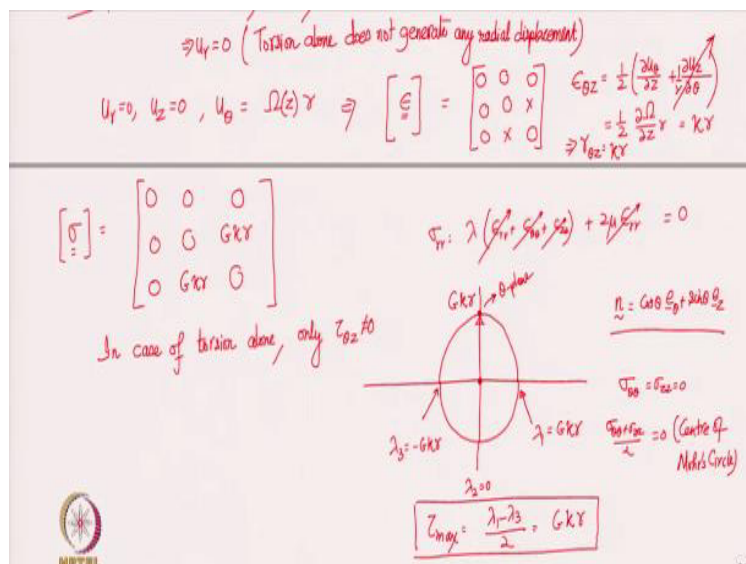 ⇒ u_r = 0 (Torsion alone does not generate any radial displacement)
u_r=0, u_z=0, u_θ = Ω(z) r ⇒ [ϵ] = [0 0 0
0 0 x
0 x 0]
ϵ_θz = 1/2 (∂u_θ/∂z + 1/r ∂u_z/∂θ)
= 1/2 ∂Ω/∂z r = κr
⇒ γ_θz = κr
[σ] = [0 0 0
0 0 Gκr
0 Gκr 0]
In case of torsion alone, only τ_θz ≠ 0
σ_rr = λ (ϵ_rr + ϵ_θθ + ϵ_zz) + 2μ ϵ_rr = 0
Gκr
θ-plane
λ_3 = -Gκr
λ_1 = Gκr
λ_2=0
n = cosθ e_θ + sinθ e_z
σ_θθ = σ_zz = 0
(σ_θθ + σ_zz)/2 = 0 (Centre of
Mohr's Circle)
τ_max = (λ_1 - λ_3)/2 = Gκr